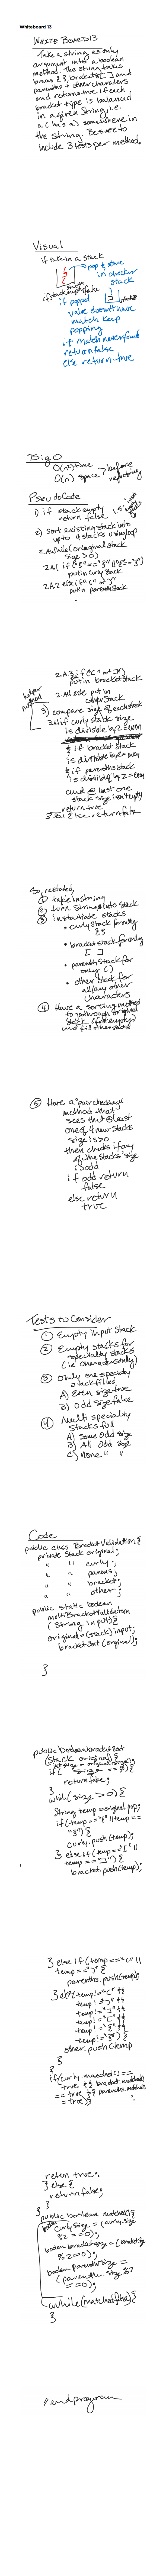 Whiteboard 13
WHITE BOARD 13
Take a string as only
argument into a boolean
method. The string takes
braces { }, brackets [ ] and
parenths + other characters
and returns true if each
bracket type is balanced
in a given string, i.e.
a ( has a ) somewhere in
the string. Be sure to
include 3 tests per method.
Visual
if take in a stack
pop & store
in checker
stack
if stack empty false
if popped
value doesn't have
match keep
popping
if match never found
return false
else return true
Big O
O(n) time
O(n) space
before
refactoring
PseudoCode
1) if stack empty
return false
2) Sort existing stack into
up to 4 stacks using loop
2.A while (original stack
size > 0)
2.A.1 if ("{" == "}" || "{" == "}")
put in curly stack
2.A.2 else if "(" or ")"
put in parenth stack
2.A.3 if "[" or "]"
put in bracket stack
2.A.4 else put in
other stack
helper
method
3) compare size of each stack
3.a if curly stack size
is divisible by 2 even
& if bracket stack
is divisible by 2 = even
& if parenths stack
is divisible by 2 = even
and @ last one
stack size isn't empty
return true
3.b else return false
So, restated,
① take in string
② turn String into Stack
③ instantiate stacks
• curly stack for only
{ }
• bracket stack for only
[ ]
• parenth stack for
only ( )
• other stack for
all/any other
characters
④ Have a sorting method
to go through original
stack (if not empty)
and fill other stacks
⑤ Have a "pair checking"
method that
sees that @ least
one of 4 new stacks
size is > 0
then checks if any
of the stacks' size
is odd
if odd return
false
else return
true
Tests to Consider
① Empty input Stack
② Empty stacks for
specialty stacks
(i.e. characters only)
③ Only one specialty
stack filled
A) Even size true
B) Odd size false
④ Multi specialty
stacks full
A) Some odd size
B) All odd size
C) None " "
Code
public class BracketValidation {
private Stack original;
" " curly;
" " parens;
" " bracket;
" " other;
public static boolean
multiBracketValidation
(String input) {
original = (stack) input;
bracketSort (original);
}
public boolean bracketSort
(Stack original) {
if ( size == 0) {
return false;
}
while (size > 0) {
String temp = original.pop;
if (temp == "{" || temp ==
"}") {
curly.push(temp);
} else if (temp == "[" ||
temp == "]") {
bracket.push(temp);
} else if (temp == "(" ||
temp == ")") {
parenths.push(temp);
} else (temp != "(" &&
temp != ")" &&
temp != "[" &&
temp != "]" &&
temp != "{" &&
temp != "}") {
other.push(temp
}
}
if (curly.matched() ==
true && bracket.matched()
== true && parenths.matched()
== true) {
return true;
} else {
return false;
}
}
public boolean matched() {
boolean curly size = (curly.size
%2 == 0);
boolean bracket size = (bracket.size
%2 == 0);
boolean parenth size =
(parenths.size %2
== 0);
while (matched false) {
}
// end program